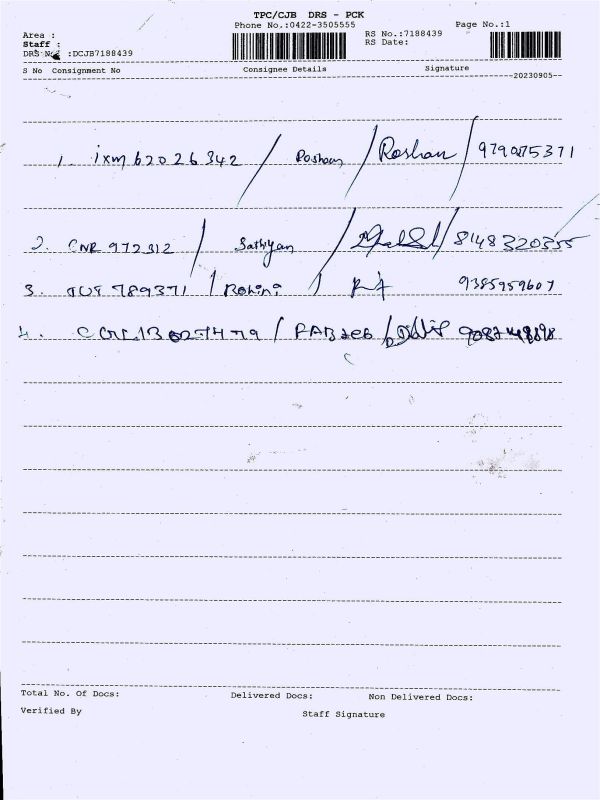 TPC/CJB DRS - PCK
Phone No.:0422-3505555 Page No.:1
Area : RS No.:7188439
Staff : RS Date:
DRS No. :DCJB7188439
S No Consignment No Consignee Details Signature
20230905
1. ixm 62026342 / Roshan / Roshan / 9790075371
2. CNR 972312 / Sathiyan / / 8148320355
3. 789371 / Rohini / 9385959607
4. /
Total No. Of Docs: Delivered Docs: Non Delivered Docs:
Verified By Staff Signature